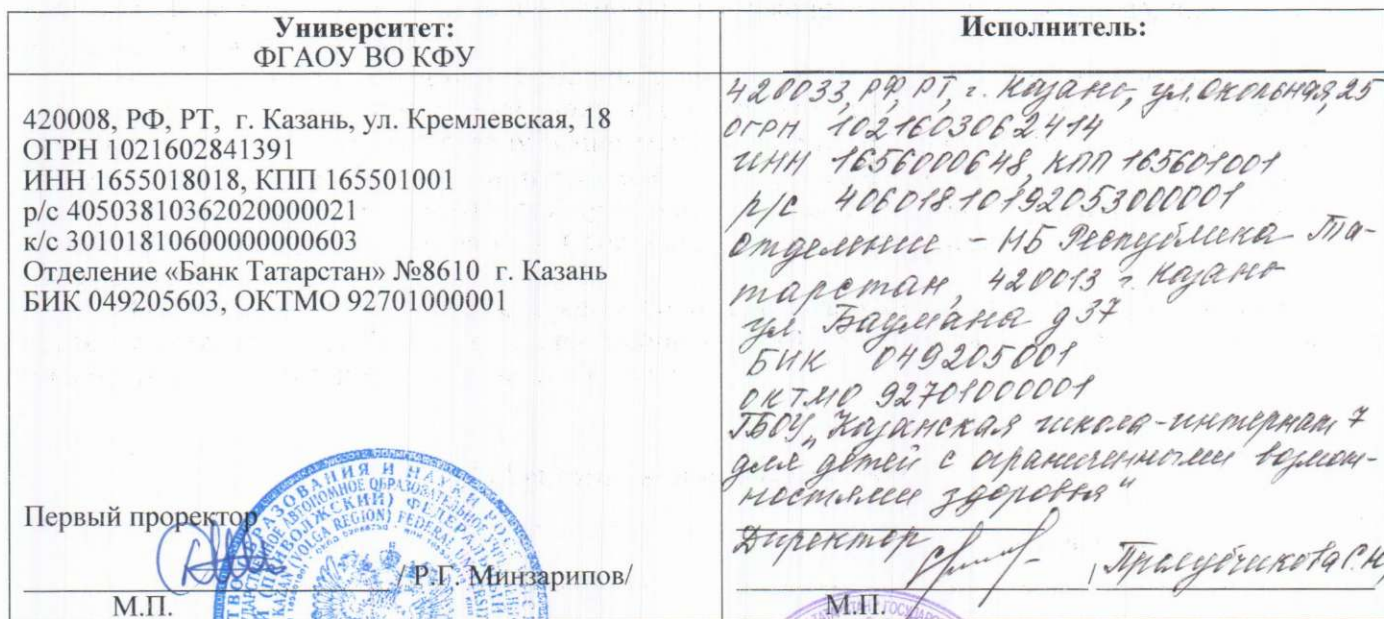 Университет:
ФГАОУ ВО КФУ
420008, РФ, РТ, г. Казань, ул. Кремлевская, 18
ОГРН 1021602841391
ИНН 1655018018, КПП 165501001
р/с 40503810362020000021
к/с 30101810600000000603
Отделение «Банк Татарстан» №8610 г. Казань
БИК 049205603, ОКТМО 92701000001
Первый проректор
/ Р.Г. Минзарипов/
М.П.
Исполнитель:
420033, РФ, РТ, г. Казань, ул. Окольная, 25
ОГРН 1021603062414
ИНН 1656000648, КПП 165601001
р/с 40601810192053000001
Отделение - НБ Республика Та-
тарстан, 420013 г. Казань
ул. Баумана д 37
БИК 049205001
ОКТМО 92701000001
ГБОУ „Казанская школа-интернат 7
для детей с ограниченными возмож-
ностями здоровья"
Директор
М.П.